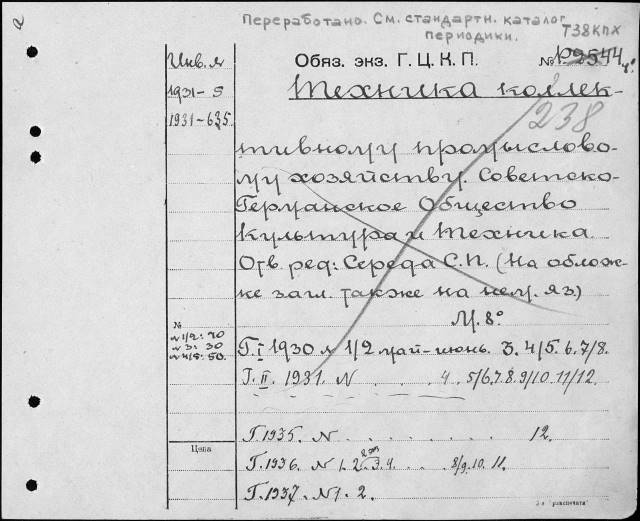 Переработано. См. стандартн. каталог
периодики.
Т38КПХ
Инв. №
Обяз. экз. Г. Ц. К. П.
№ Р2544
1931-5
Техника коллек-
1931-635
238
тивному промыслово-
му хозяйству. Советско-
Германское Общество
Культура и Техника.
Отв. ред: Середа С.П. (На облож-
ке загл. также на нем. яз)
М. 8°
№
№1/2: 70
№3: 30
№4/5: 50.
Г. I 1930 № 1/2 май-июнь. 3. 4/5. 6. 7/8.
Г. II. 1931. N . . . . 4. 5/6.7.8.9/10.11/12.
Г. 1935. N . . . . . . . 12.
Цена
Г. 1936. N 1. 2. 3. 4. . . . 8/9. 10. 11.
Г. 1937. N 1. 2.